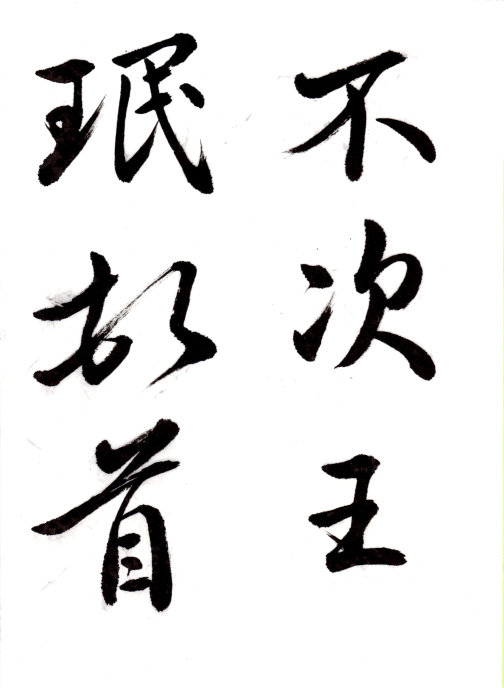 不次王
珉故首